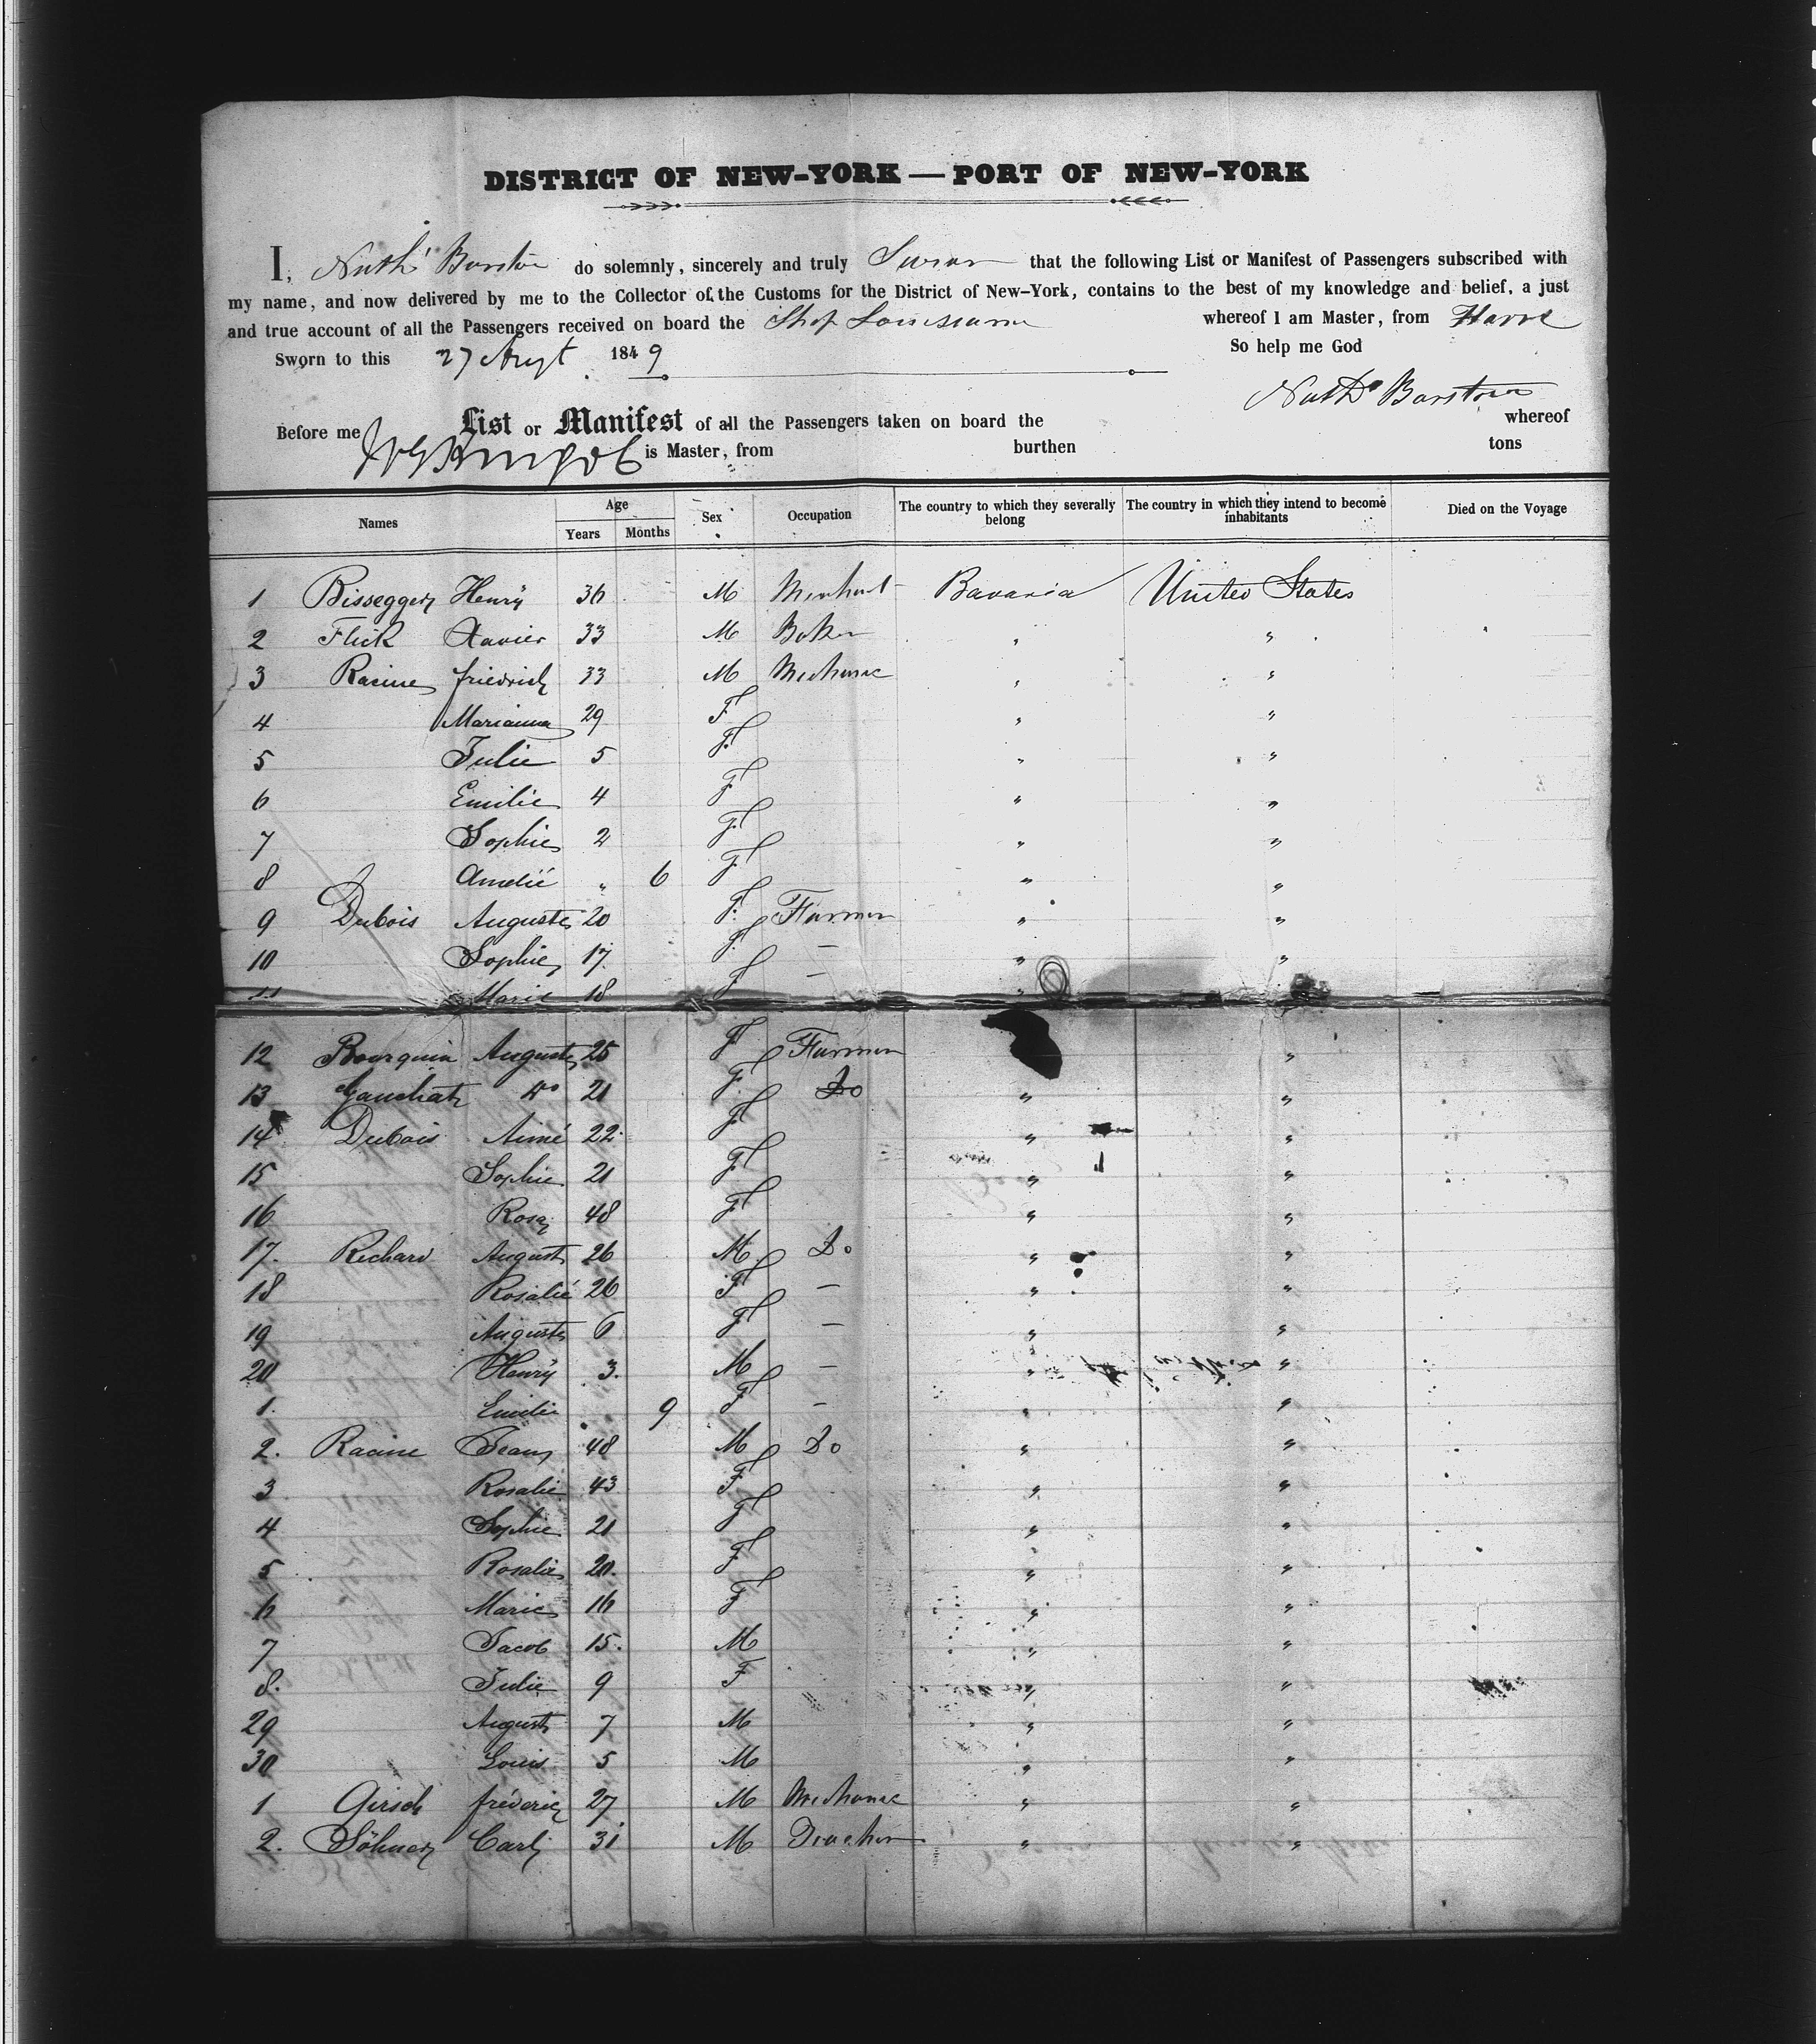 DISTRICT OF NEW-YORK — PORT OF NEW-YORK
I, Nathl Barstow do solemnly, sincerely and truly Swear that the following List or Manifest of Passengers subscribed with
my name, and now delivered by me to the Collector of the Customs for the District of New-York, contains to the best of my knowledge and belief, a just
and true account of all the Passengers received on board the Ship Louisiana whereof I am Master, from Havre
Sworn to this 27 Augt 1849 So help me God
Nathl Barstow
Before me List or Manifest of all the Passengers taken on board the whereof
is Master, from burthen tons
Names Age Years Months Sex Occupation The country to which they severally belong The country in which they intend to become inhabitants Died on the Voyage
1 Bissegger Henry 36 M Merchant Bavaria United States
2 Flick Xavier 33 M Baker " "
3 Racine friedrich 33 M Mechanic " "
4 Marianna 29 F " "
5 Julie 5 F " "
6 Emilie 4 F " "
7 Sophie 2 F " "
8 Amelié " 6 F " "
9 Dubois Auguste 20 F Farmer " "
10 Sophie 17 F — " "
11 Marie 18 F — "
12 Bourquin Auguste 25 F Farmer "
13 Gauchat do 21 F Do " "
14 Dubois Aimé 22 F " "
15 Sophie 21 F " "
16 Rosa 48 F " "
17. Richard August 26 M Do " "
18 Rosalié 26 F — " "
19 Auguste 6 F — " "
20 Henry 3. M — " "
1. Emilie 9 F — " "
2. Racine Jean 48 M Do " "
3 Rosalie 43 F " "
4 Sophie 21 F " "
5 Rosalie 20. F " "
6 Marie 16 F " "
7 Jacob 15. M " "
8. Julie 9 F " "
29 August 7 M " "
30 Louis 5 M " "
1 Girsch fréderic 27 M Mechanic " "
2. Söhner Carl 31 M Teacher " "